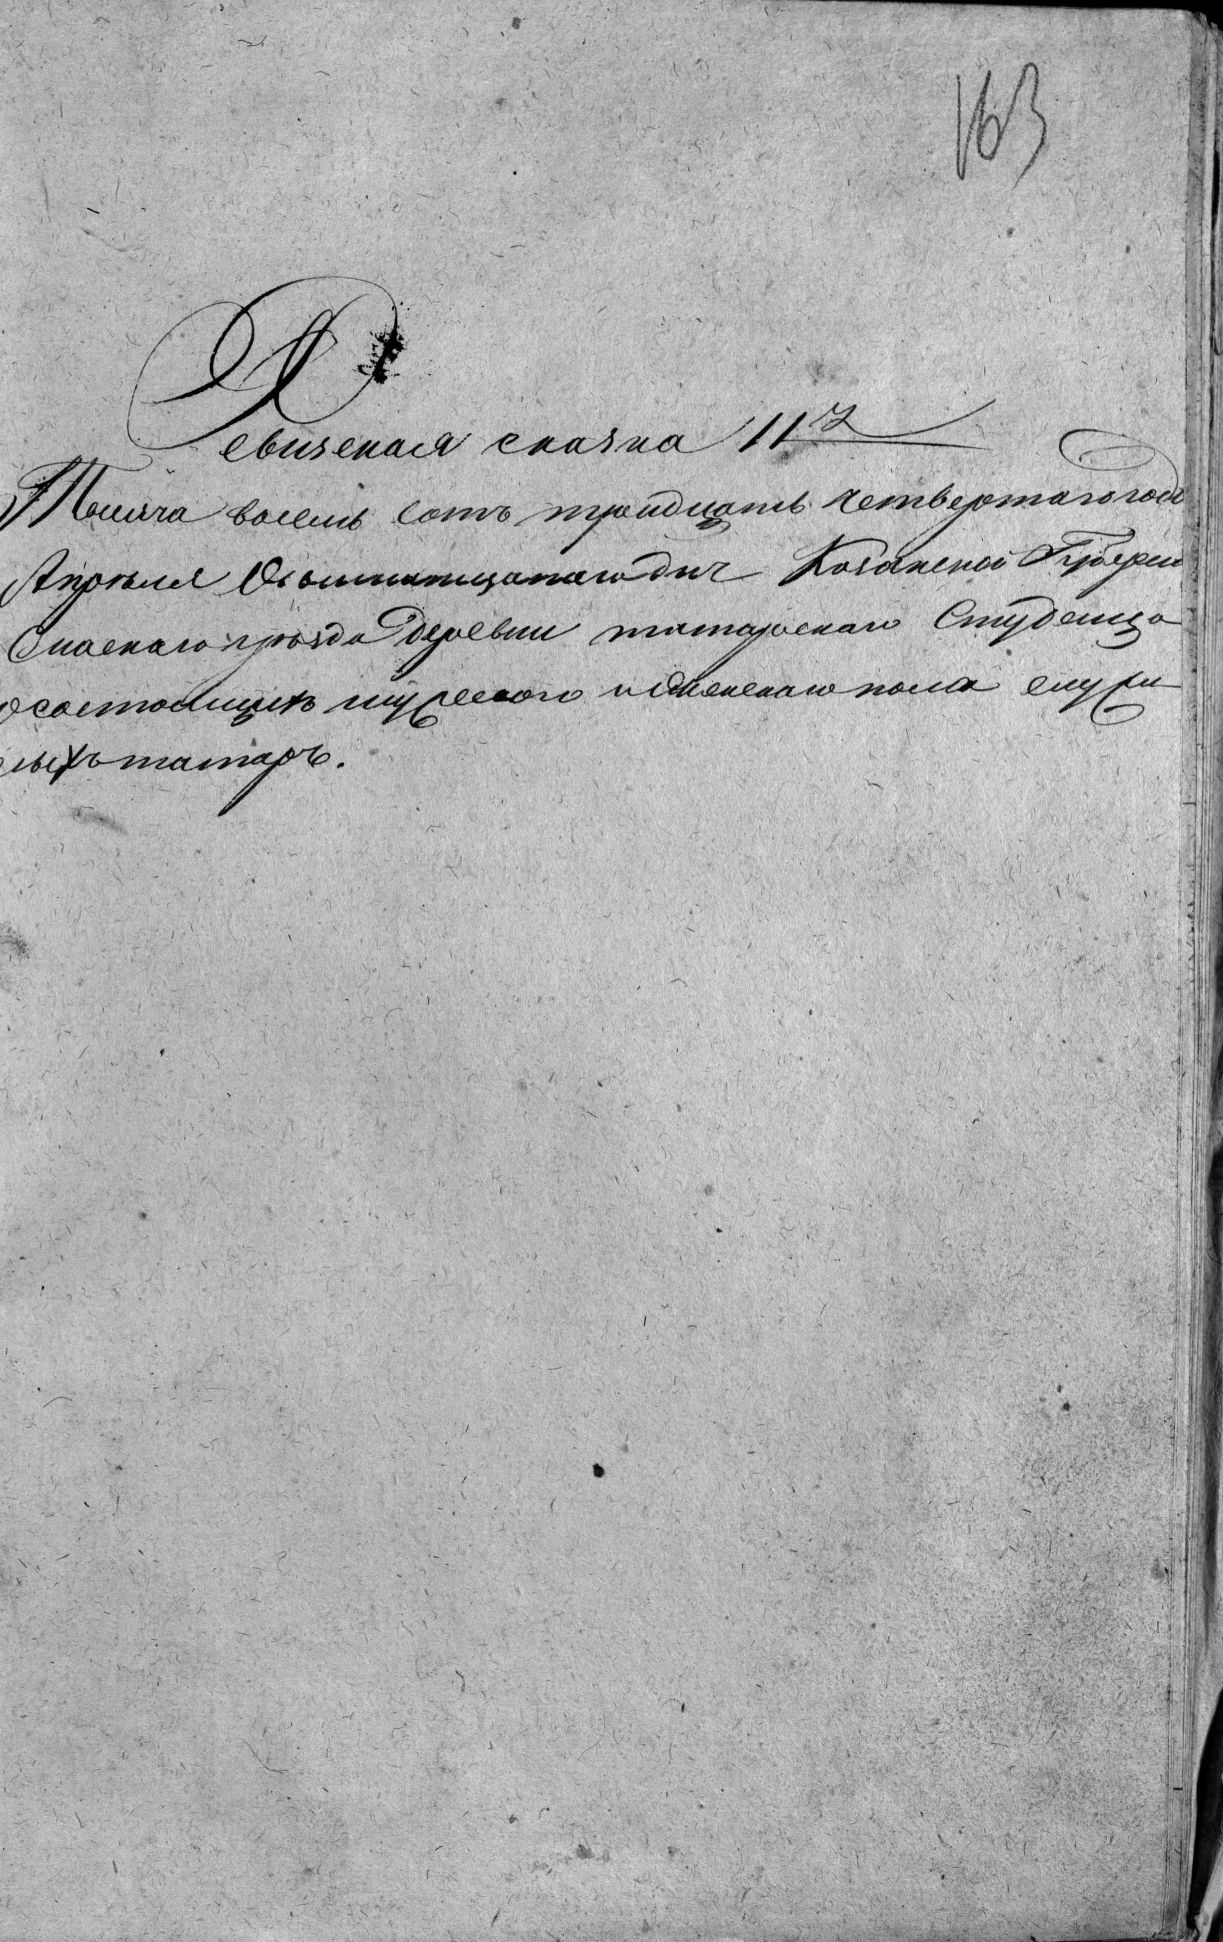 163
Ревизская сказка 117
Тысяча восемь сотъ тридцать четвертаго года
Апреля Осьминатцатаго дня Казанской Губернии
Спаскаго уезда Деревни татарскаго Студенца
о состоящихъ мужеского и женскаго пола служи
лыхъ татаръ.